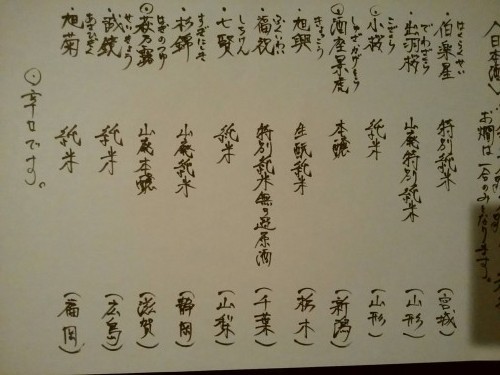 日本酒
お燗は一合のみとなります。
はくらくせい
・伯楽星 特別純米 (宮城)
でわざくら
・出羽桜 山廃特別純米 (山形)
こざくら
・小桜 純米 (山形)
◎酒座景虎 本醸 (新潟)
・旭興 生酛純米 (栃木)
ふくいわい
・福祝 特別純米無ろ過原酒 (千葉)
しちけん
・七賢 純米 (山梨)
すぎにしき
・杉錦 山廃純米 (静岡)
はぎのつゆ
◎萩乃露 山廃本醸 (滋賀)
せいきょう
・誠鏡 純米 (広島)
あさひきく
・旭菊 純米 (福岡)
◎辛口です。